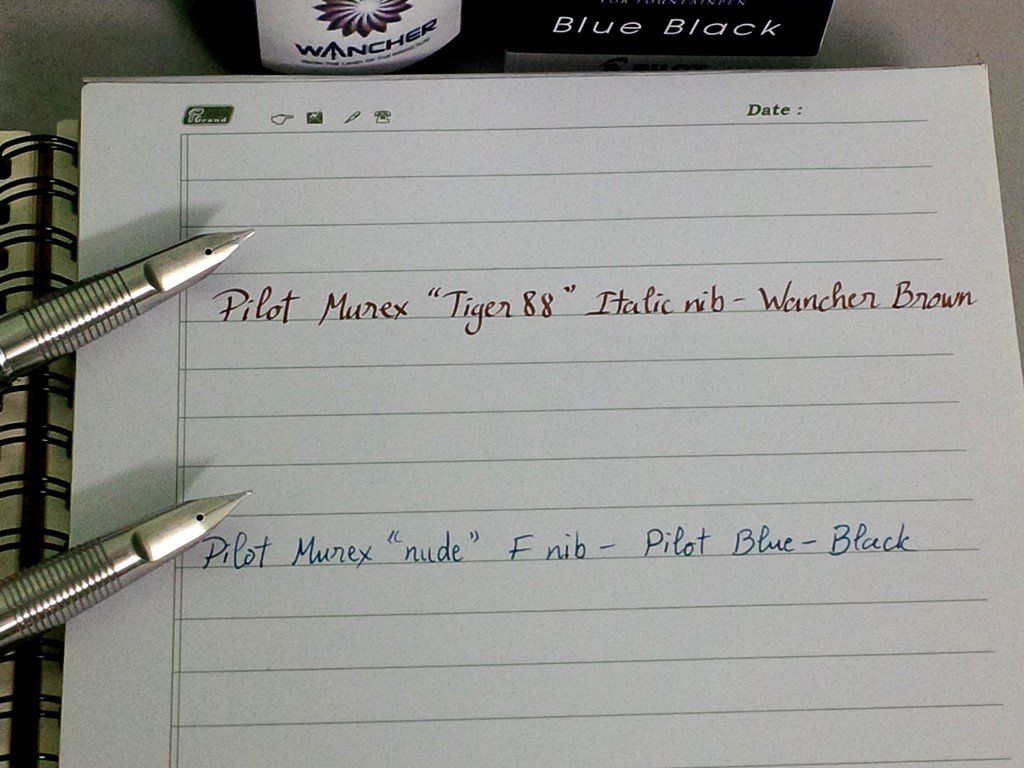 WANCHER
FOR FOUNTAINPEN
Blue Black
PILOT
Grand
Date :
Pilot Murex "Tiger 88" Italic nib - Wancher Brown
Pilot Murex "nude" F nib - Pilot Blue-Black